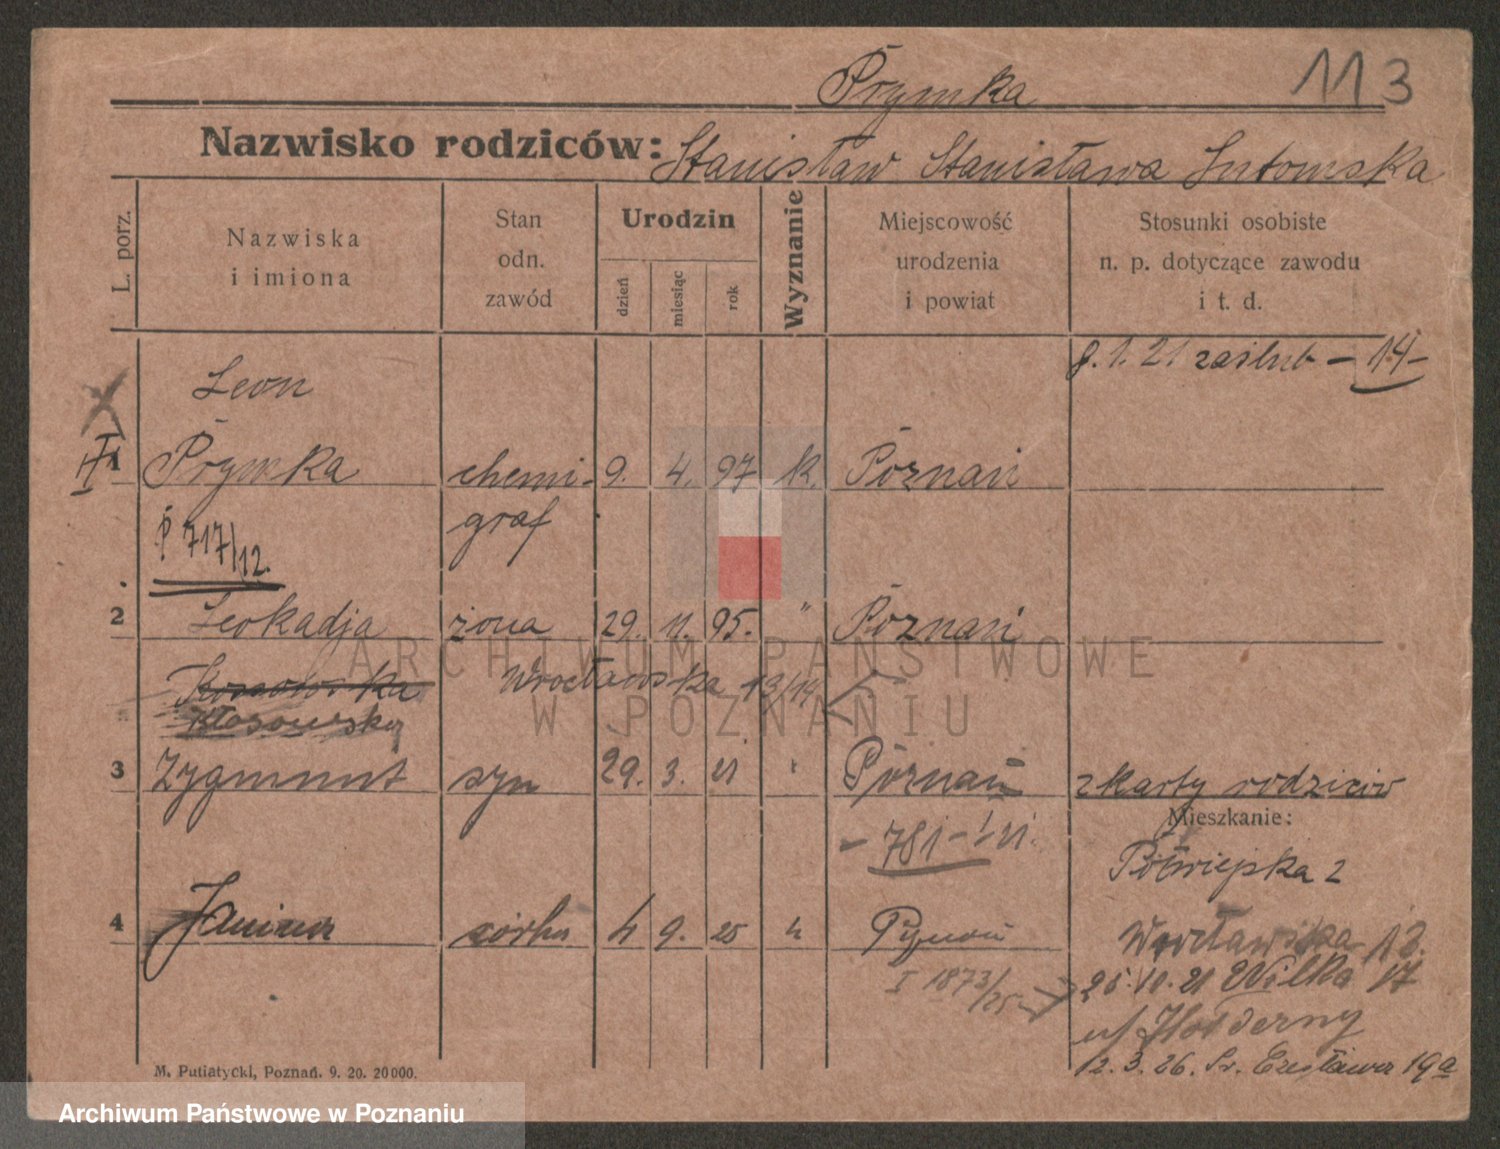 113
Prymka
Nazwisko rodziców: Stanisław Stanisława Lutomska
L. porz.
Nazwiska
i imiona
Stan
odn.
zawód
Urodzin
dzień
miesiąc
rok
Wyznanie
Miejscowość
urodzenia
i powiat
Stosunki osobiste
n. p. dotyczące zawodu
i t. d.
8. 1. 21 zaślub – 14 –
Leon
1 Prymka chemi- 9. 4. 97 k. Poznań
graf
P 717/12.
2 Leokadja żona 29. 11. 95. " Poznań
Wrocławska 13/14
Kłosowska
3 Zygmunt syn 29. 3. 21 " Poznań z karty rodziców
– 781 – I 21.
Mieszkanie:
Półwiejska 2
4 Janina córka 4 9. 25 " Poznań
Wrocławska 13.
I 1873/25
25. 10. 21 Wilka 17
12. 3. 26. Św. Czesława 19a
M. Putiatycki, Poznań. 9. 20. 20000.
ARCHIWUM PAŃSTWOWE
W POZNANIU
Archiwum Państwowe w Poznaniu